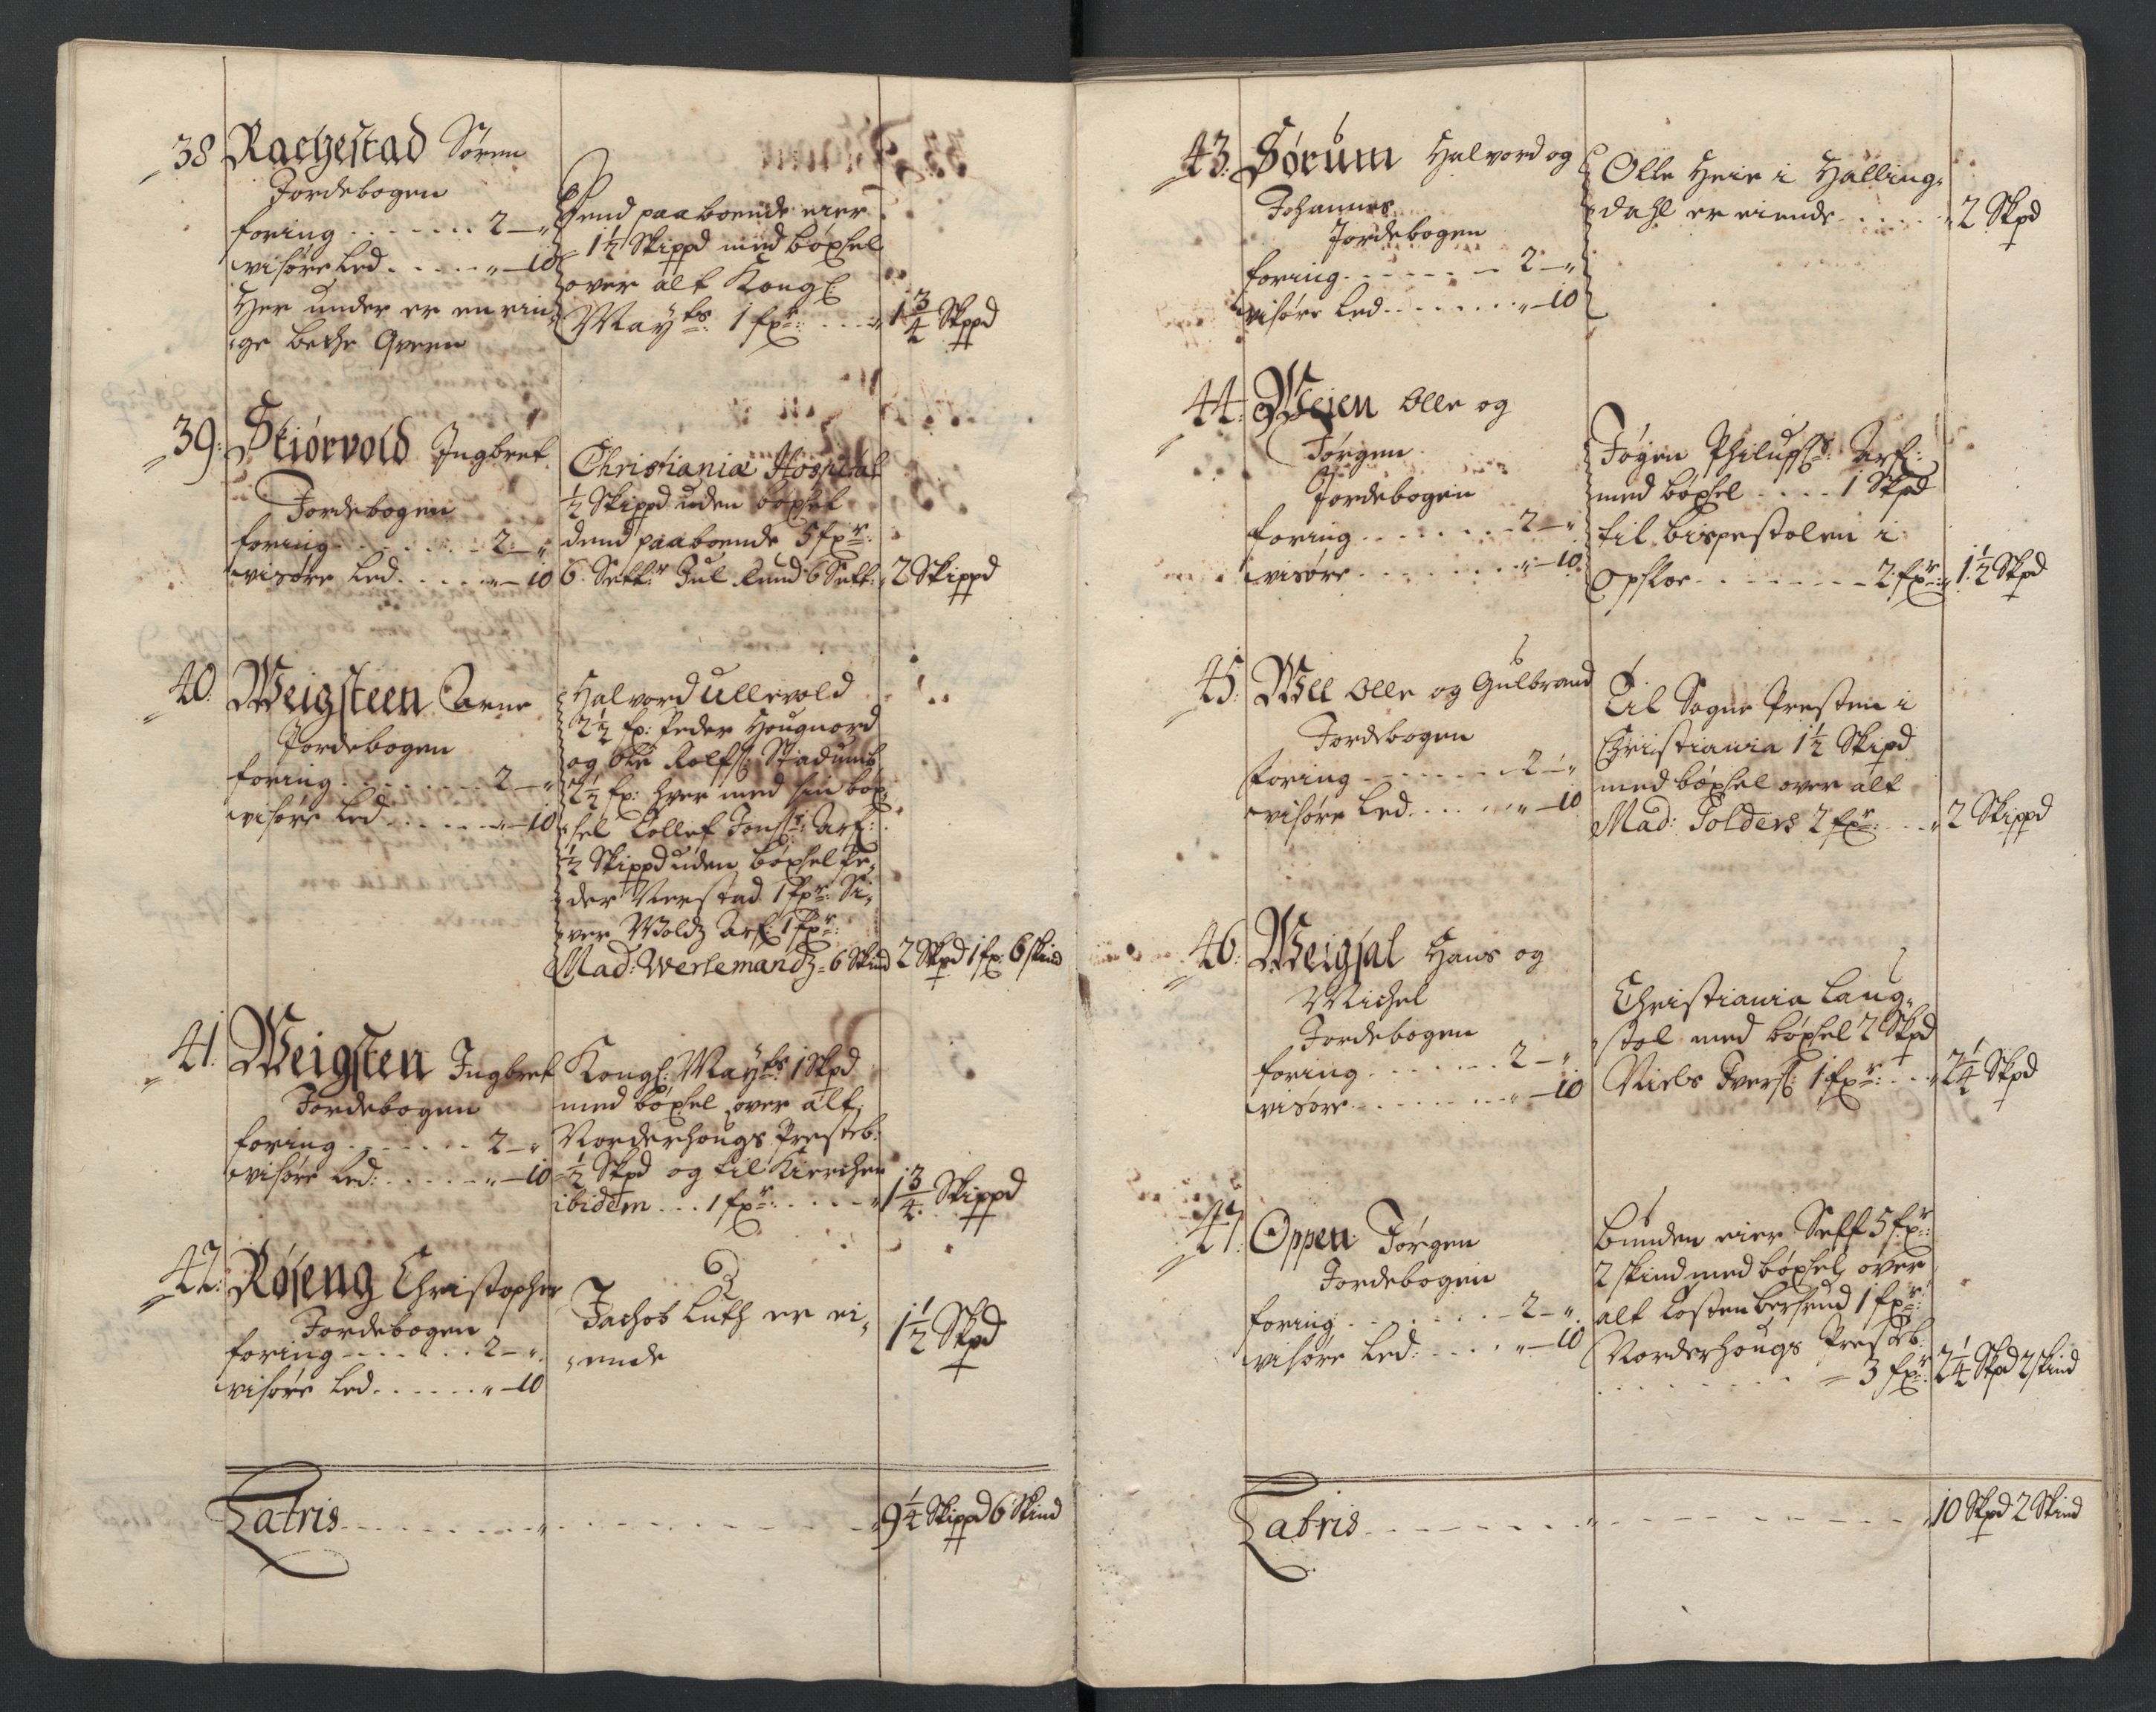 38 Rachestad Søren
Jordebogen
foring . . . . . . . 2 — "
visøre led . . . . . " — 10
Her under er en rin,
,ge belhe Qveen
Dend paaboende eier
1½ Skippd med böxsel
over alt Kongl:
Mayts: 1 fxr: . . . " 1¾ Skippd
39: Skiörvold Ingbret
Jordebogen
foring . . . . . . . 2 — "
visøre led . . . . . " — 10
Christiania Hospital
½ Skippd uden böxsel
dend paaboende 5 fxr:
6. Settr Jul Lund 6 Sett: " 2 Skippd
40: Weigsteen Arne
Jordebogen
foring . . . . . . . 2 — "
visøre led . . . . . " — 10
Halvord Ullevold
2½ fx: Peder Hougnord
og Ole Rolfs: Stadumb
2½ fx: hver med sin böx,
,sel Tollef Jonsr: Arf:
½ Skippd uden böxsel Pe,
,der Nerstad 1 fxr: Si,
,ver Woldz Arf: 1 fxr:
Mad: Werlemandz = 6 Skind 2 Skpd 1 fx: 6 skind
41: Weigsten Ingbret
Jordebogen
foring . . . . . . . 2 — "
visøre led: . . . . . " — 10
Kongl: Mayts: 1 Skpd
med böxsel over alt
Norderhougs Presteb:
½ Skpd og til Kierchen
ibidem . . . 1 fxr: . . . . . " 1¾ Skippd
42: Røseng Christopher
Jordebogen
foring . . . . . . . 2 — "
visøre led . . . . . . " — 10
Jachob Luth er ei,
,ende
1½ Skpd
Latris . . . . . . . " . . . . . . . " 9¼ Skippd 6 Skind
43: Sørum Halvord og
Johannes
Jordebogen
foring . . . . . . . 2 — "
visøre led . . . . . . . " — 10
Olle Heie i Halling,
,dahl er eiende . . . . . . " 2 Skpd
44: Weien Olle og
Jørgen
Jordebogen
foring . . . . . . . 2 — "
visøre . . . . . . . . " — 10
Jøgen Philups: Arf:
med böxsel . . . . 1 Skpd
til bispestolen i
Opsloe . . . . . . . . 2 fxr: " 1½ Skpd
45: Well Olle og Gulbrand
Jordebogen
foring . . . . . . . 2 — "
visøre led . . . . . " — 10
Til Sogne Presten i
Christiania 1½ Skipd
med böxsel over alt
Mad: Tolders 2 fxr: . . . " 2 Skippd
46: Weigsal Hans og
Michel
Jordebogen
foring . . . . . . . 2 — "
visøre . . . . . . . . " — 10
Christiania Laug,
,stol med böxsel 2 Skpd
Niels Ivers: 1 fxr: . . . " 2¼ Skpd
47: Oppen Jørgen
Jordebogen
foring . . . . . . . 2 — "
visøre led: . . . . " — 10
bunden eier Self 5 fxr:
2 skind med böxsel over
alt Tosten berserud 1 fxr:
Norderhougs Presteb:
. . . . . . . = 3 fxr: 2¼ Skpd 2 skind
Latris . . . . . . . " . . . . . . . " 10 Skpd 2 Skind